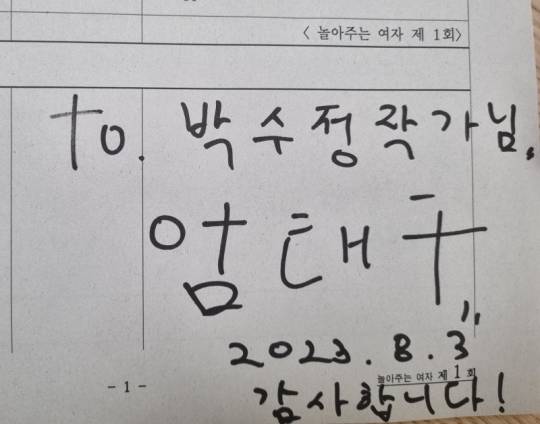 < 놀아주는 여자 제 1회>
to. 박수정작가님.
엄태구
2023. 8. 3"
놀아주는 여자 제 1 회
- 1 -
감사합니다!